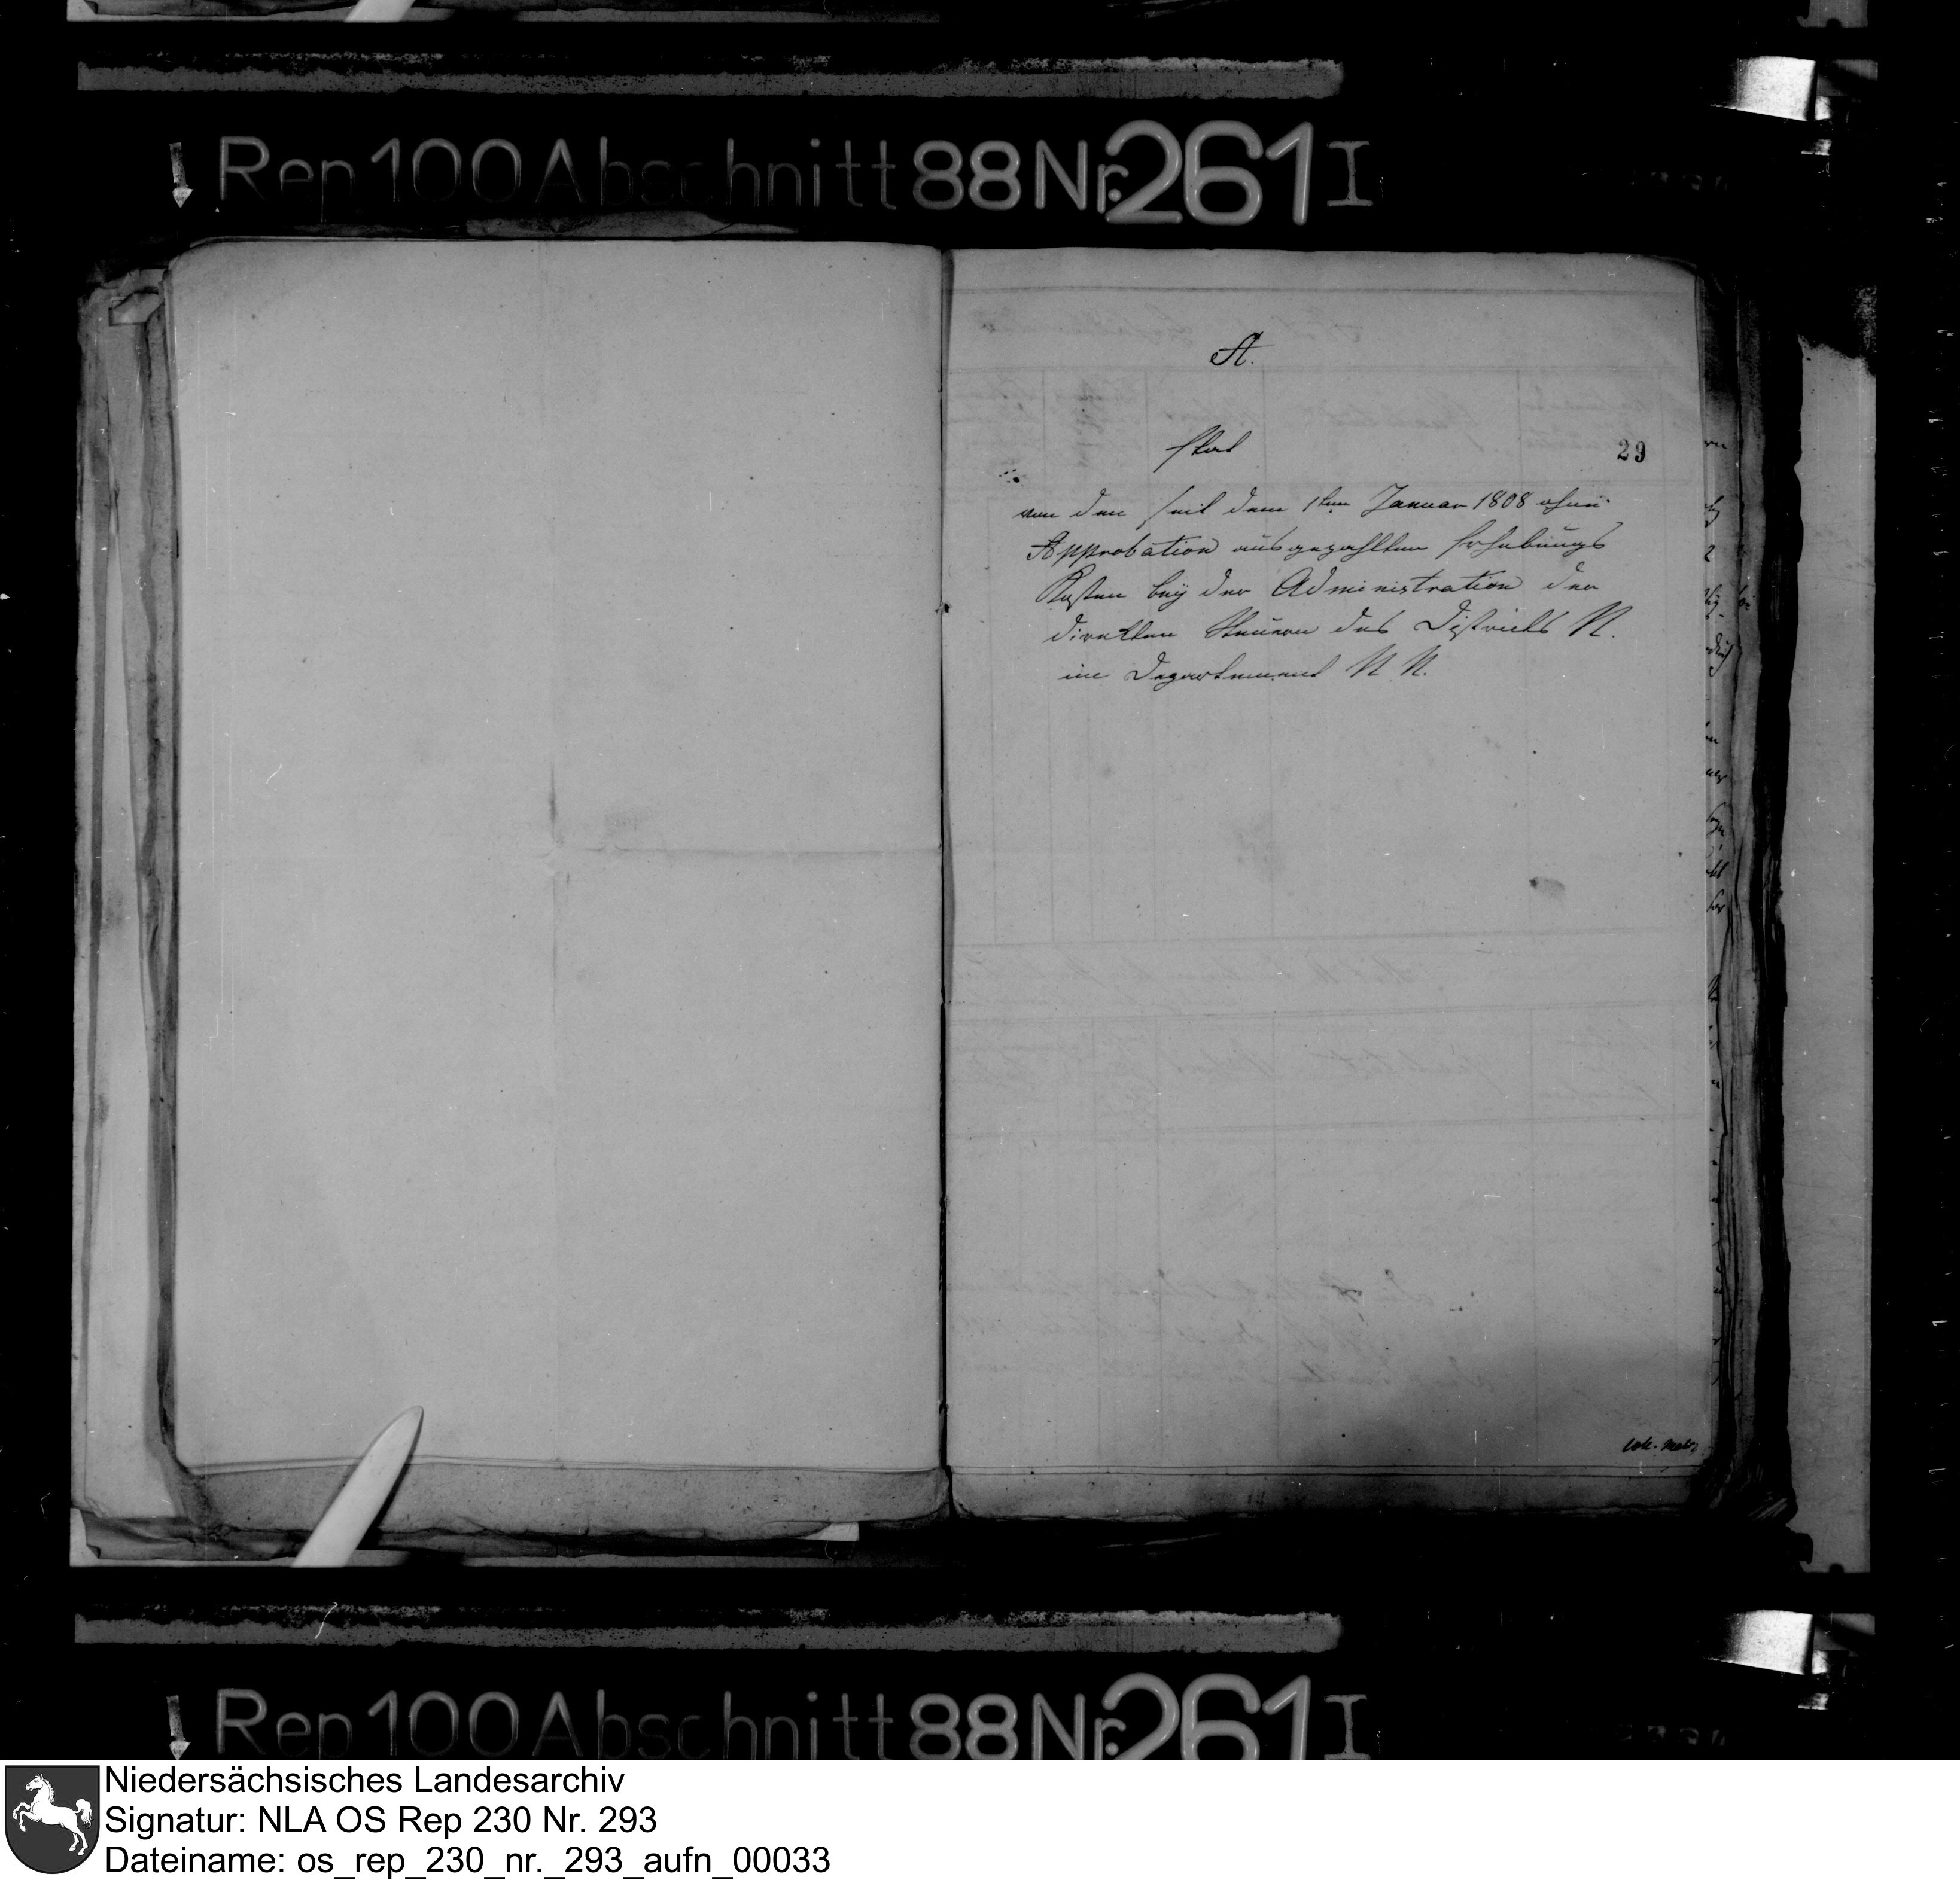 Rep 100 Abschnitt 88 Nr. 261 I
A.
Etat
29
von den seit dem 1ten Januar 1808 ohne
Approbation ausgezahlten Erhebungs
Kosten bey der Administration der
direkten Steuern des Districts N.
im Departement N N.
Rep 100 Abschnitt 88 Nr. 261 I
Niedersächsisches Landesarchiv
Signatur: NLA OS Rep 230 Nr. 293
Dateiname: os_rep_230_nr._293_aufn_00033